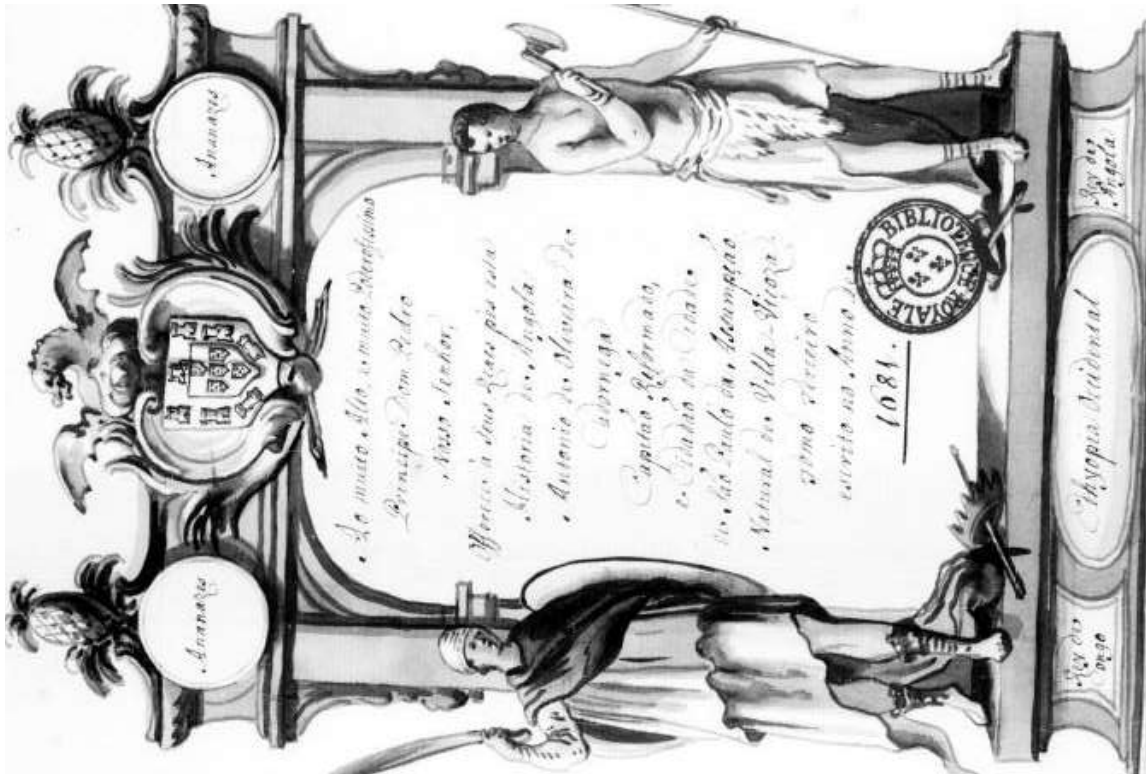 Ananazes
Ananazes
Ao muito Alto, e muito Poderosissimo
Principe Dom Pedro
Nosso Senhor,
Offerece à seus Reaes pes esta
Historia de Angola
Antonio de Oliveira de
Cadornega
Capitaõ Reformado,
e Cidadaõ da Cidade
de Saõ Paulo da Assumpçaõ
Natural de Villa-Viçoza
Tomo Terceiro
escrito no Anno de
1681.
BIBLIOTHEQUE ROYALE
Rey do
ongo
Ethyopia Occidental
Rey de
Angola